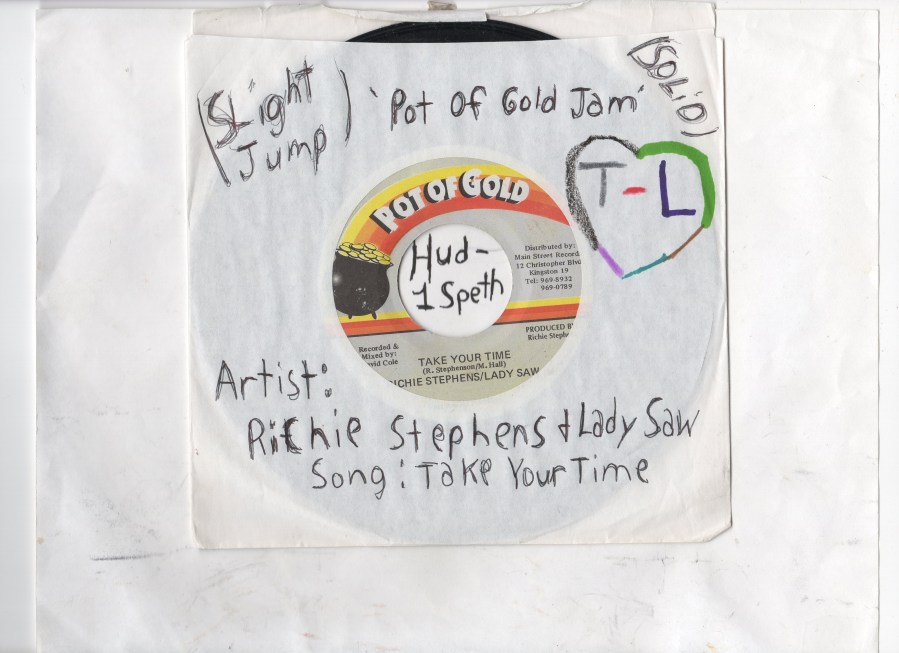 (SLight
Jump)
'Pot Of Gold Jam'
(SOLiD)
T-L
POT OF GOLD
Hud-
1 Speth
Distributed by:
Main Street Record
12 Christopher Blv
Kingston 19
Tel: 969-8932
969-0789
PRODUCED B
Richie Steph
Recorded &
Mixed by:
vid Cole
TAKE YOUR TIME
(R. Stephenson/M. Hall)
ICHIE STEPHENS/LADY SAW
Artist:
Richie Stephens + Lady Saw
Song: Take Your Time